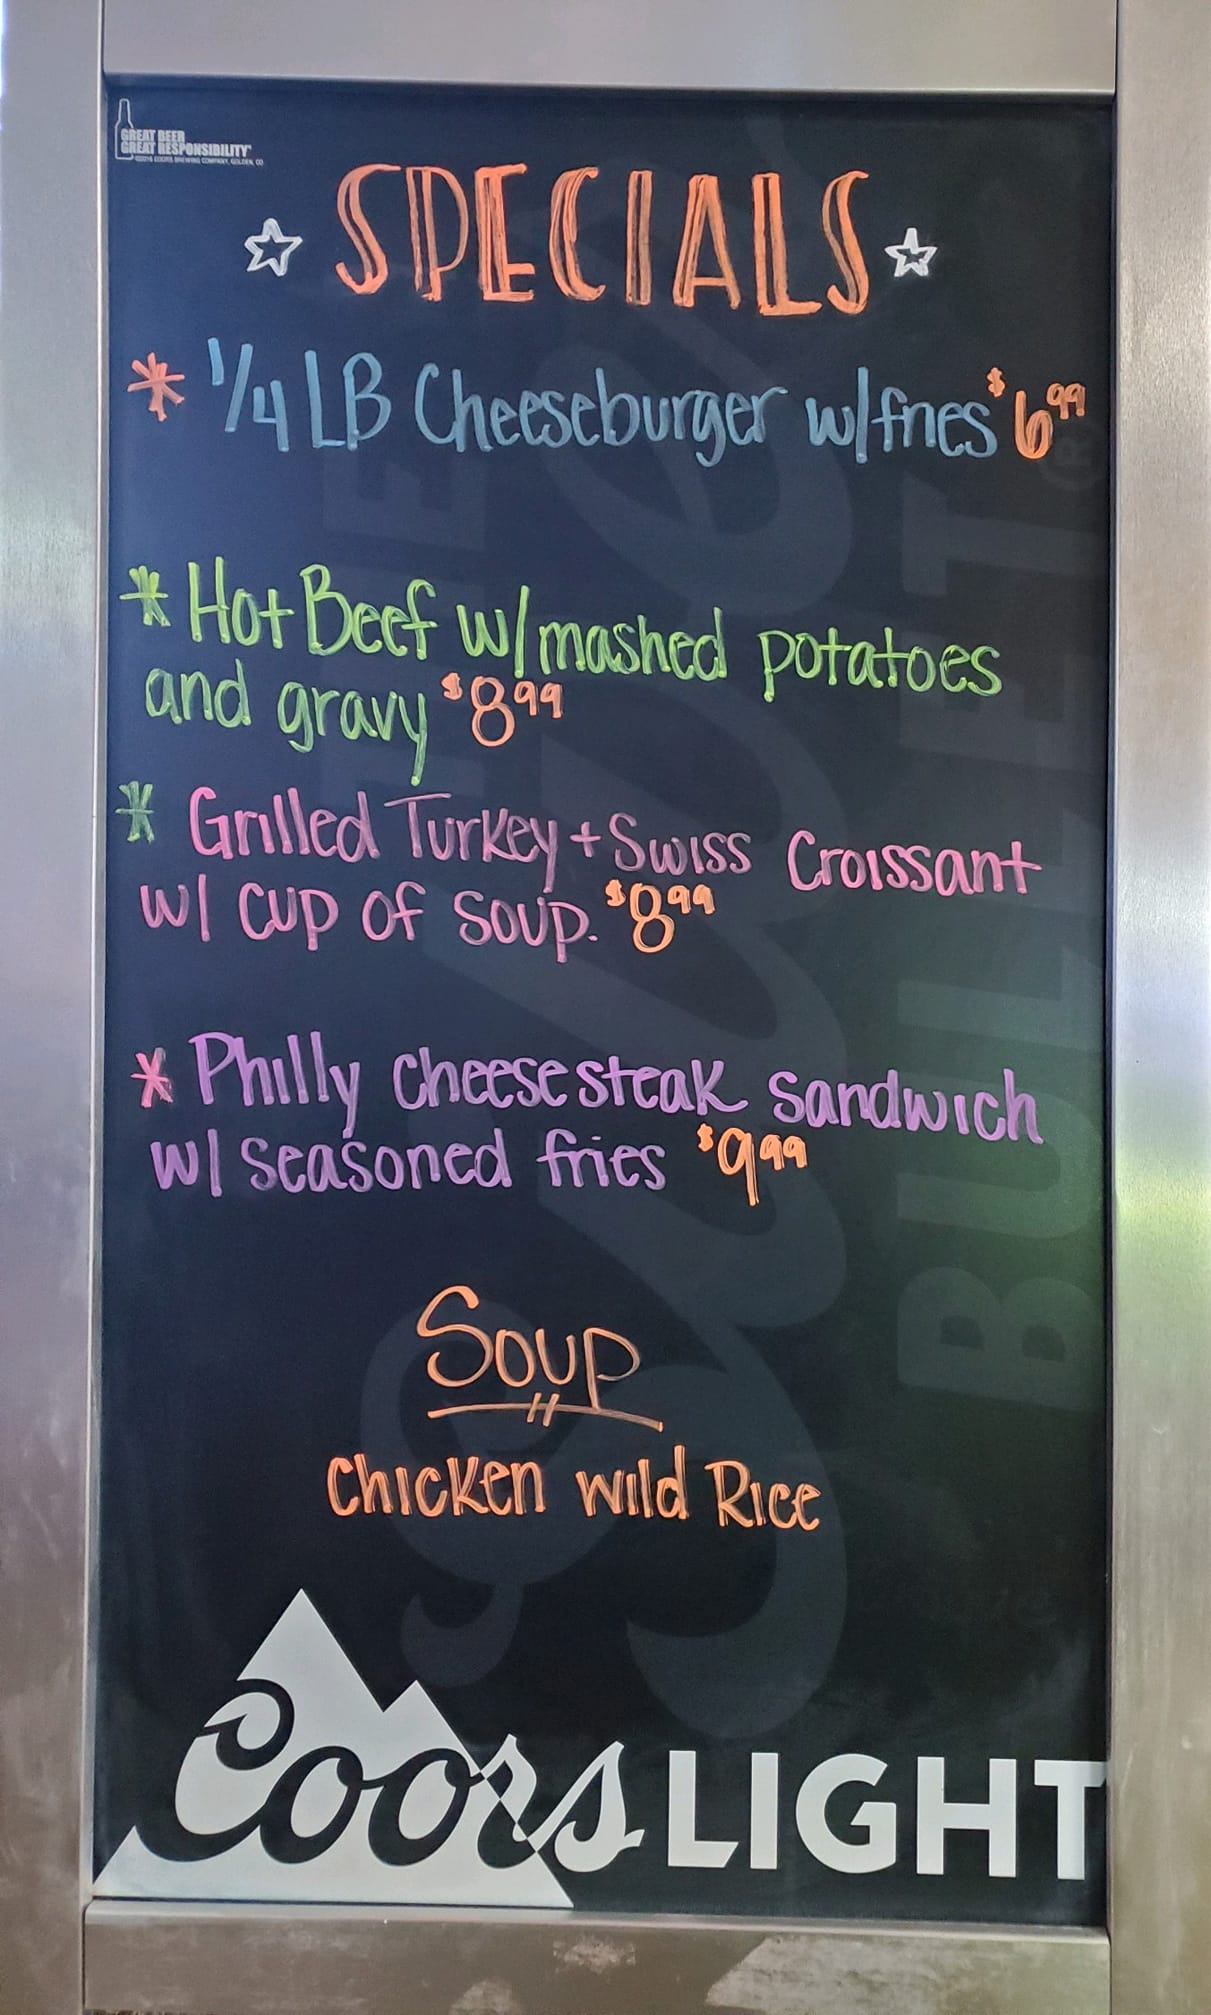 GREAT BEER
GREAT RESPONSIBILITY
©2016 COORS BREWING COMPANY, GOLDEN, CO
SPECIALS
* 1/4 LB Cheeseburger w/fries $6.99
* Hot Beef w/mashed potatoes
and gravy $8.99
* Grilled Turkey + Swiss Croissant
w/ cup of soup. $8.99
* Philly cheese steak sandwich
w/ seasoned fries $9.99
Soup
Chicken Wild Rice
Coors LIGHT
THE
Silver
BULLET®